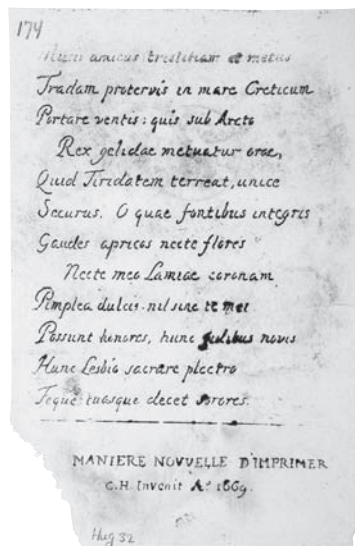 174
Musis amicus tristitiam et metus
Tradam protervis in mare Creticum
Portare ventis: quis sub Arcto
Rex gelidae metuatur orae,
Quid Tiridatem terreat, unice
Securus. O quae fontibus integris
Gaudes apricos necte flores
Necte meo Lamiae coronam
Pimplea dulcis. nil sine te mei
Possunt honores, hunc fidibus novis
Hunc Lesbio sacrare plectro
Teque tuasque decet sorores.
MANIERE NOVVELLE D'IMPRIMER
C.H. Invenit Aº. 1669.
Hug 32